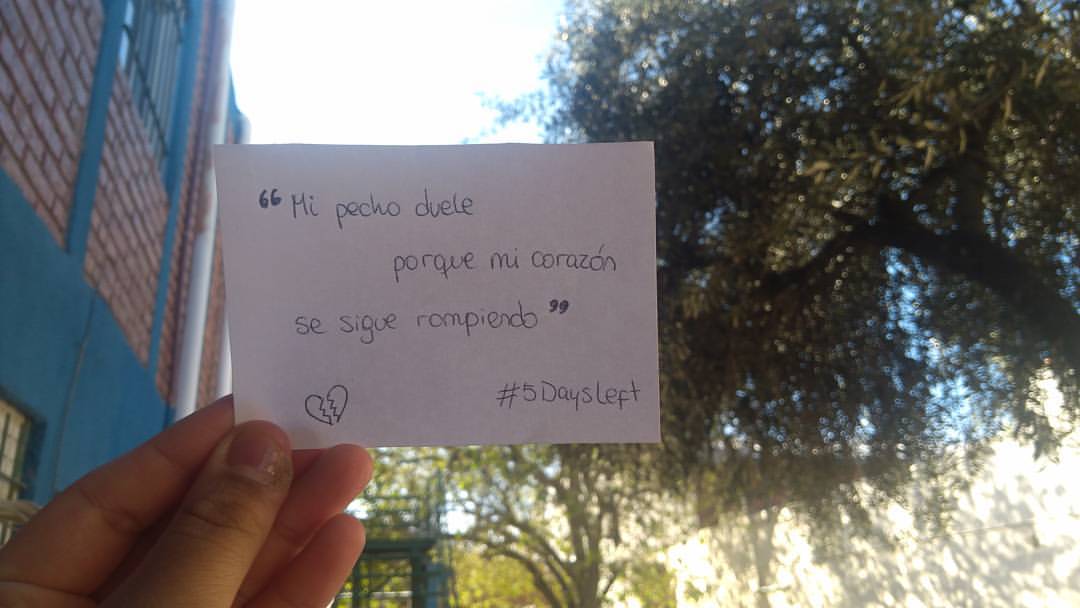 “Mi pecho duele
porque mi corazón
se sigue rompiendo”
#5DaysLeft